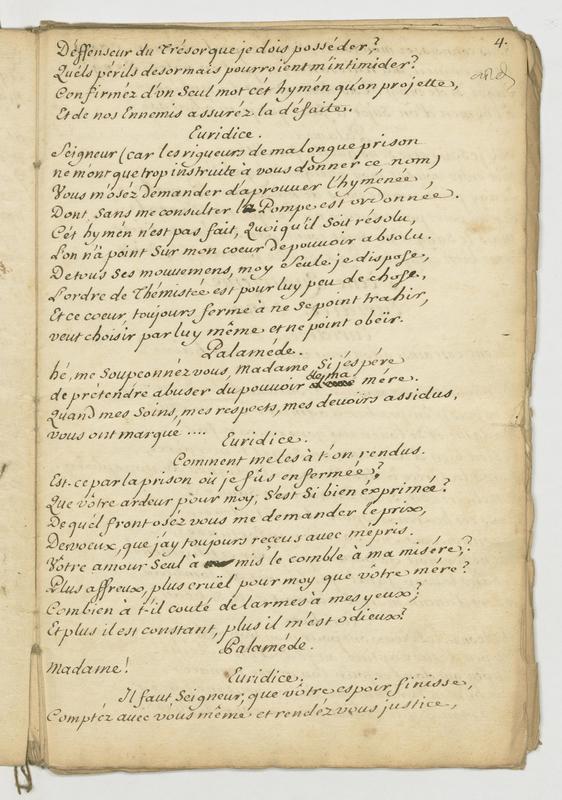 4.
Déffenseur du Trésor que je dois posséder,?
Quéls périls desormais pourroient m'intimider?
Confirméz d'un Seul mot cét hymén qu'on projette,
Et de nos Ennemis assuréz la défaite.
Euridice.
Seigneur (car les rigueurs de ma longue prison
ne m'ont que trop instruite à vous donner ce nom)
Vous m'oséz demander d'aprouver l'hyménée
Dont, Sans me consulter la Pompe est ordonnée.
Cét hymén n'est pas fait, Quoiqu'il Soit résolu,
L'on n'a point Sur mon coeur de pouvoir absolu.
De tous Ses mouvemens, moy Seule je dispose,
L'ordre de Thémistée est pour luy peu de chose,
Et ce coeur toujours ferme à ne Se point trahir,
veut choisir par luy même et ne point obeïr.
Palaméde.
hé, me Soupçonnéz vous, Madame, Si j'éspére
de prétendre abuser du pouvoir de ma mére.
Quand mes Soins, mes respects, mes devoirs assidus,
vous ont marqué ....
Euridice.
Comment me les à t'on rendus.
Est-ce par la prison où je fûs enfermée,?
Que vôtre ardeur pour moy, S'est Si bien éxprimée?
De quél front oséz vous me demander le prix,
De voeux, que j'ay toujours receus avec mépris.
Vôtre amour Seul à mis le comble à ma misére,?
Plus affreux, plus cruël pour moy que vôtre mére?
Combien à t'il couté de larmes à mes yeux?,
Et plus il est constant, plus il m'est odieux?
Palaméde.
Madame!
Euridice.
Il faut Seigneur, que vôtre espoir finisse,
Comptéz avec vous même et rendéz vous justice,